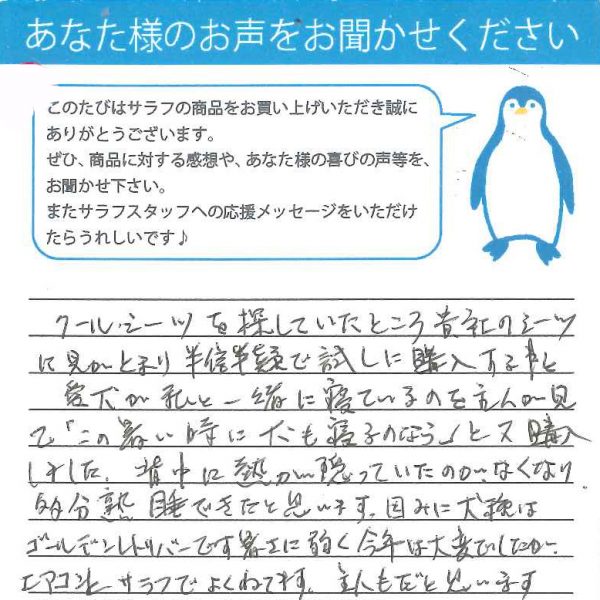 あなた様のお声をお聞かせください
このたびはサラフの商品をお買い上げいただき誠に
ありがとうございます。
ぜひ、商品に対する感想や、あなた様の喜びの声等を、
お聞かせ下さい。
またサラフスタッフへの応援メッセージをいただけ
たらうれしいです♪
クールシーツを探していたところ貴社のシーツ
に見がとまり半信半疑で試しに購入すると
愛犬が私と一緒に寝ているのを主人が見
て「この暑い時に犬も寝るのなら」と又購入
しました。背中に熱が籠っていたのが、なくなり
多分熟睡できたと思います。因みに犬種は
ゴールデンレトリバーです暑さに弱く今年は大変でしたが、
エアコンとサラフでよくねてます。主人もだと思います